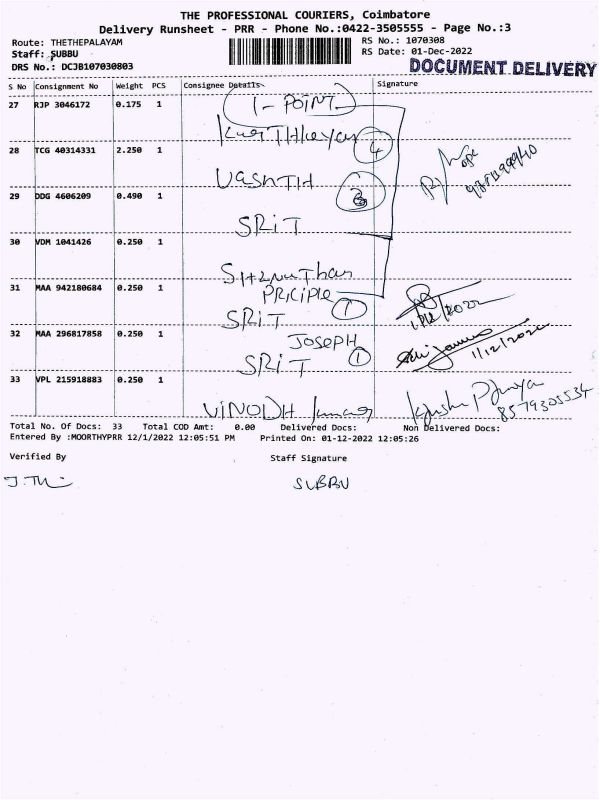 THE PROFESSIONAL COURIERS, Coimbatore
Delivery Runsheet - PRR - Phone No.:0422-3505555 - Page No.:3
Route: THETHEPALAYAM
RS No.: 1070308
Staff: SUBBU
RS Date: 01-Dec-2022
DRS No.: DCJB107030803
DOCUMENT DELIVERY
S No Consignment No Weight PCS Consignee Details Signature
27 RJP 3046172 0.175 1
1- POINT
28 TCG 40314331 2.250 1
4
29 DDG 4606209 0.490 1
VASNTH
SRiT
30 VDM 1041426 0.250 1
31 MAA 942180684 0.250 1
PRiCiPle 1
SRiT
32 MAA 296817858 0.250 1
JOSEPH
SRiT 1
1/12/2022
33 VPL 215918883 0.250 1
ViNODH kumar
8579305534
Total No. Of Docs: 33 Total COD Amt: 0.00 Delivered Docs: Non Delivered Docs:
Entered By :MOORTHYPRR 12/1/2022 12:05:51 PM Printed On: 01-12-2022 12:05:26
Verified By Staff Signature
SUBBU